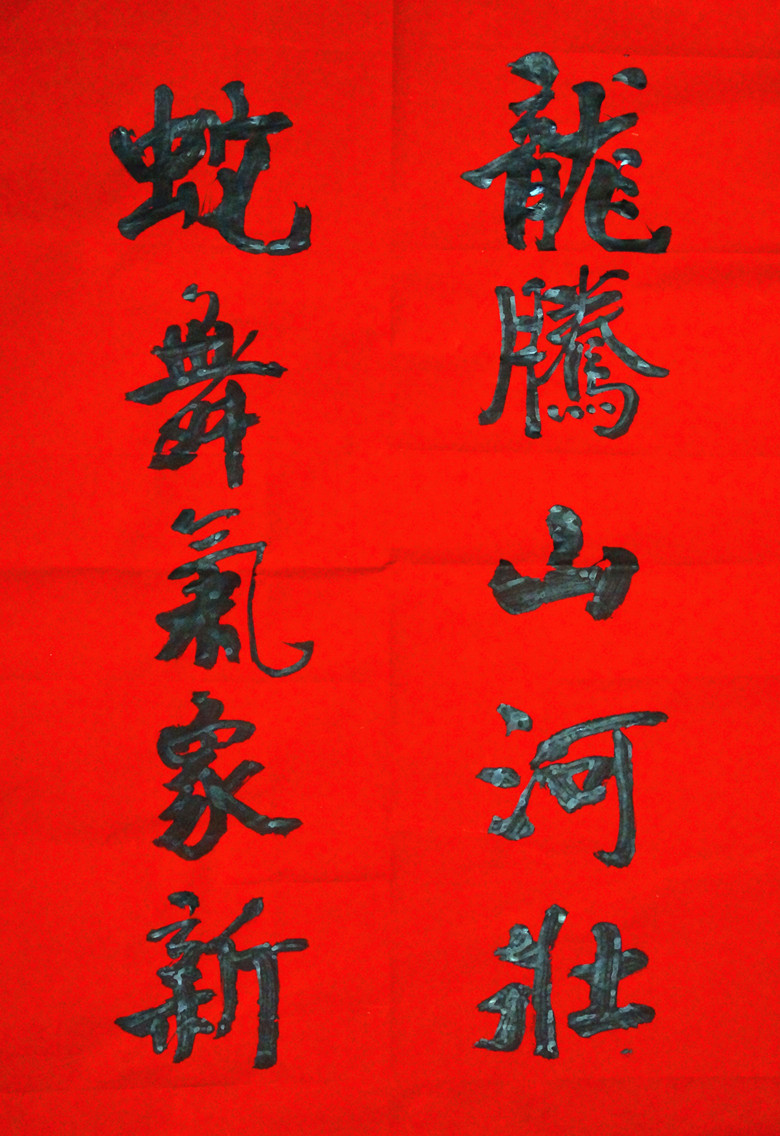 龍騰山河壯
蛇舞氣象新